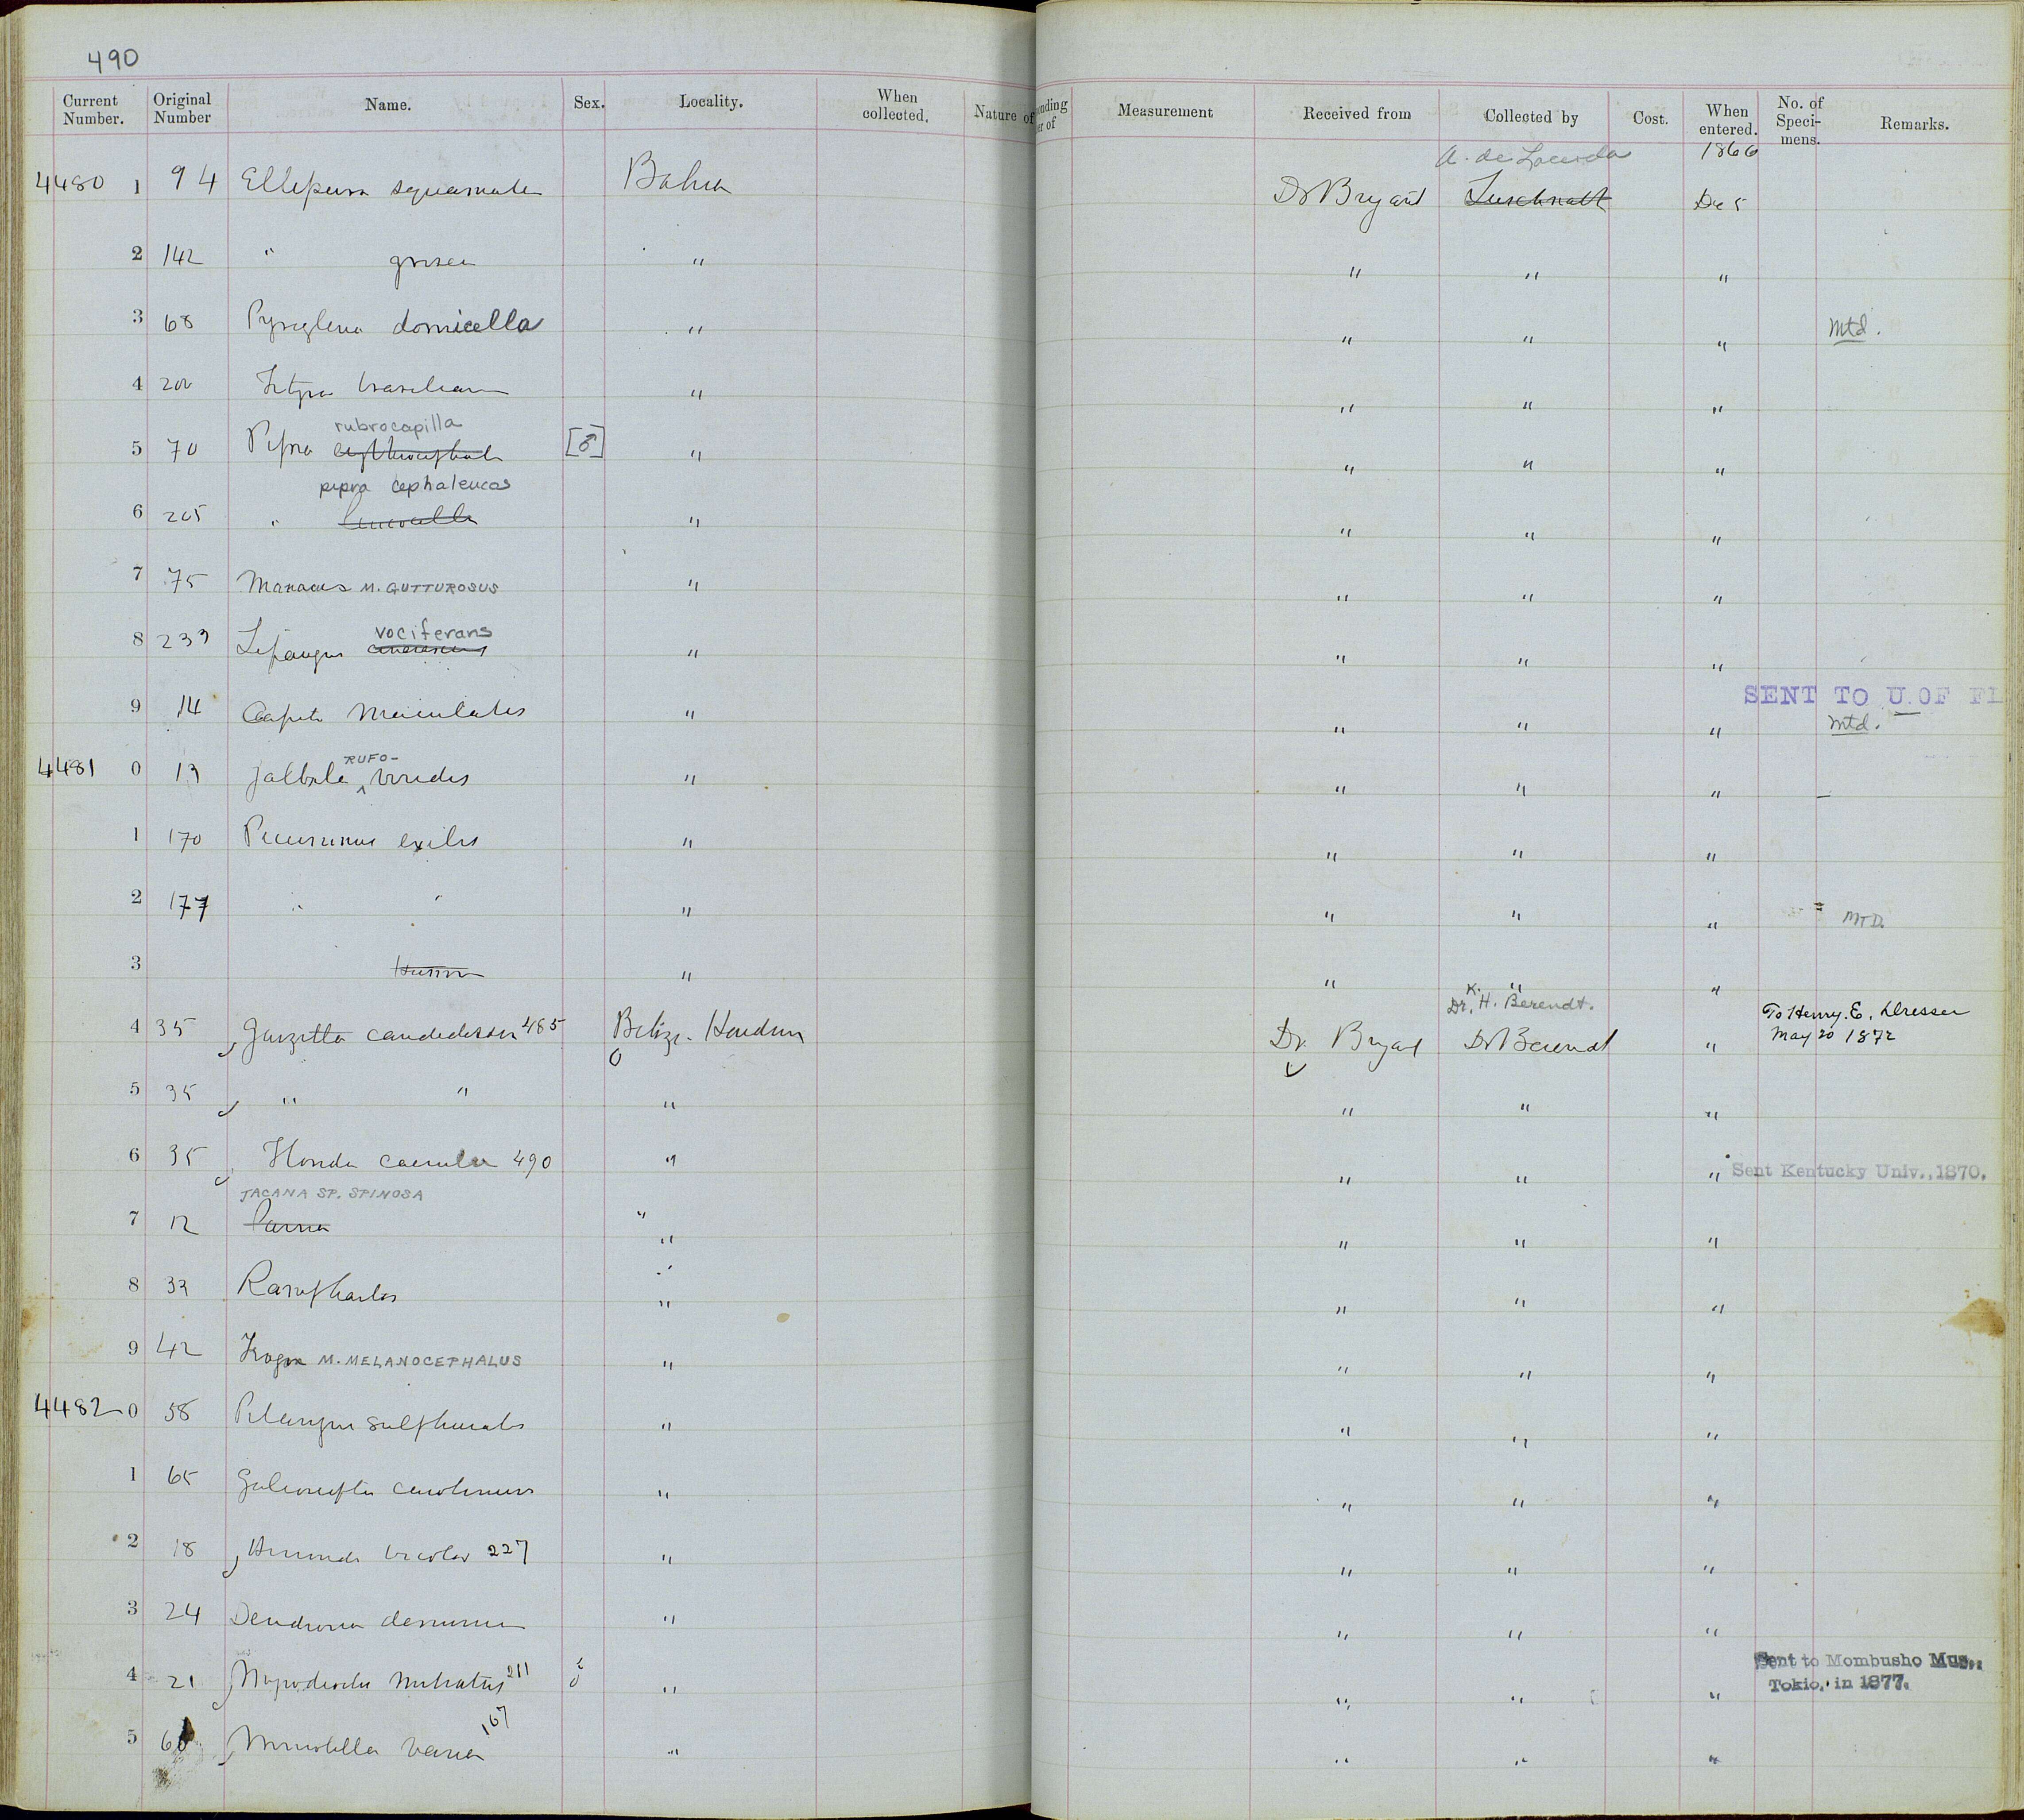 490
Current Number. Original Number Name. Sex. Locality. When collected. Nature of
onding er of Measurement Received from Collected by Cost. When entered. No. of Speci-mens. Remarks.
A. de Lacerda 1866
4480 1 94 Ellipura squamata Bahia Dr Bryant Luschnatt Dec 5
2 142 " grisea " " " "
3 68 Pyriglena domicella " " " " Mtd.
4 200 Tityra brasiliana " " " "
rubrocapilla
5 70 Pipra erythrocephala [♂] " " " "
pipra cephaleucos
6 205 " leucocilla " " " "
7 75 Manacus M. GUTTUROSUS " " " "
vociferans
8 233 Lipaugus cinerascens " " " "
SENT TO U. OF FL
9 14 Capito maculatus " " " " Mtd.
RUFO-
4481 0 13 Galbula viridis " " " " –
1 170 Picumnus exilis " " " "
2 177 " " " " " " MTD.
3 " " " "
Dr. K. H. Berendt.
4 35 Garzetta candidissima 485 Belize. Honduras Dr. Bryant Dr Berendt " To Henry. E. Dresser
May 20 1872
5 35 " " " " " "
6 35 Florida caerulea 490 " " " " Sent Kentucky Univ., 1870.
JACANA SP. SPINOSA
7 12 Parra " " " " "
8 33 Ramphastos " " " "
9 42 Trogon M. MELANOCEPHALUS " " " "
4482 0 58 Pitangus sulphuratus " " " "
1 65 Galeoscoptes carolinensis " " " "
2 18 Hirundo bicolor 227 " " " "
3 24 Dendroica " " " "
4 21 Myiodioctes mitratus 211 ♂ " " " " Sent to Mombusho Mus.,
Tokio, in 1877.
5 60 Mniotilta varia 167 " " " "